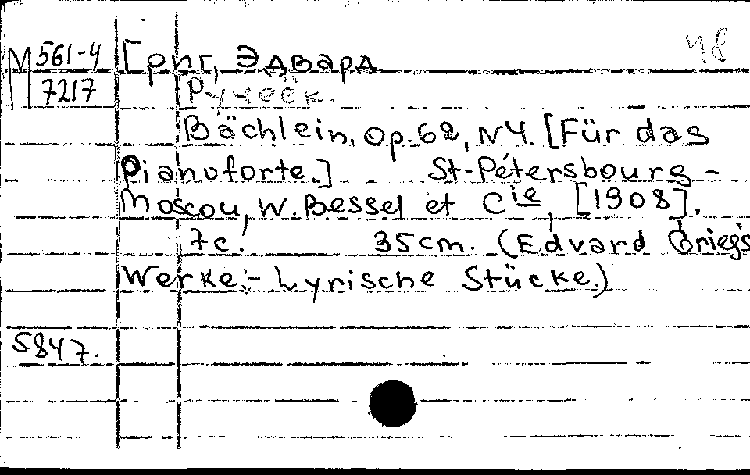 М 561-4 Григ, Эдвард 48
7217 Ручеек.
Bächlein, Op. 62, N4. [Für das
Pianoforte.] St-Pétersbourg-
Moscou, W. Bessel et Cie, [1908].
7с. 35cm. (Edvard Grieg's
Werke.- Lyrische Stücke.)
5847.